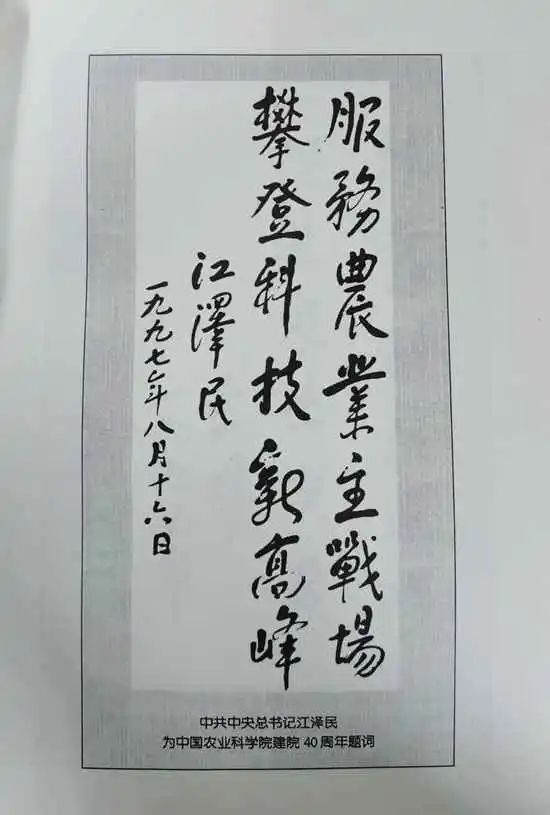 服務農業主戰場
攀登科技新高峰
江澤民
一九九七年八月十六日
中共中央总书记江泽民
为中国农业科学院建院 40 周年题词